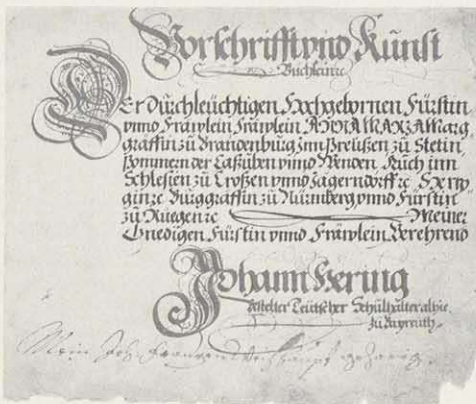 Vorschrifft vnd Kunst
Buchlein ꝛc
DEr Durchleuchtigen Hochgebornen Fürstin
vnnd Fräwlein Fräwlein ANNA MARIA Marg
graffin zu Brandenburg Inn Preußen zu Stetin
Pommern der Caßuben vnnd Wenden Auch inn
Schlesien zu Croßen vnnd Jägerndorff ꝛc Hertzo
gin ꝛc Burggraffin zu Nürmberg vnnd Fürstin
zu Ruegen ꝛc Meiner
Gnedigen Fürstin vnnd Fräwlein Verehrend
Johann Hering
Teutscher Schulhalter alhie
zu Bayreuth
Mein Joh.